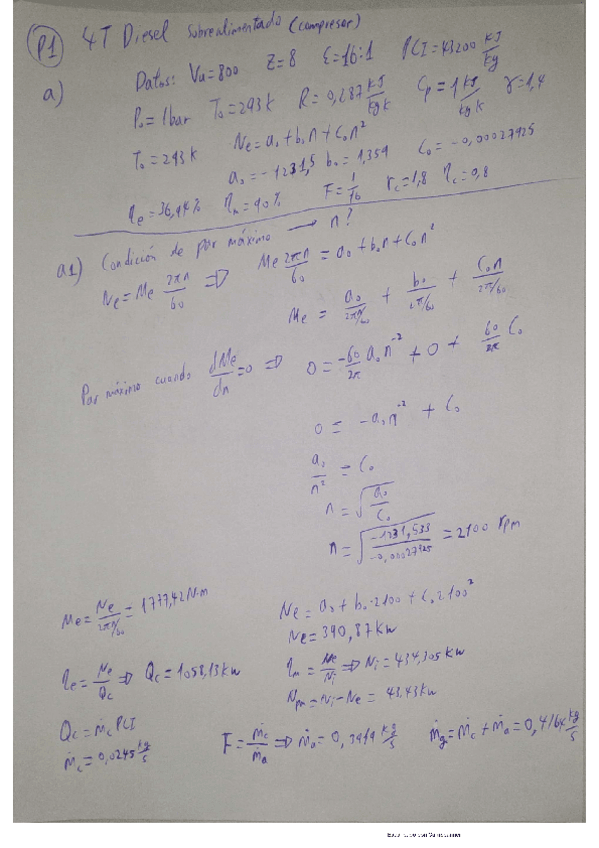 P1 4T Diesel sobrealimentado (compresor)
a) Datos: Vu=800 Z=8 ε=16:1 PCI=43200 kJ/kg
P₀=1bar T₀=293k R=0,287 kJ/kgk Cp=1 kJ/kgk γ=1,4
T₀=293k Ne=a₀+b₀n+c₀n²
a₀=-1231,5 b₀=1,359 c₀=-0,00027925
ηe=36,94% ηm=90% F=1/16 rc=1,8 ηc=0,8
a1) Condición de par máximo → n?
Ne=Me 2πn/60 ⇒ Me 2πn/60 = a₀+b₀n+c₀n²
Me = a₀/2πn/60 + b₀/2π/60 + c₀n/2π/60
Par máximo cuando dMe/dn=0 ⇒ 0=-60/2π a₀n⁻² + 0 + 60/2π c₀
0 = -a₀n⁻² + c₀
a₀/n² = c₀
n=√a₀/c₀
n=√-1231,533/-0,00027925 = 2100 rpm
Me=Ne/2πn/60 = 1777,42 N·m Ne=a₀+b₀·2100+c₀2100²
Ne=390,87kw
ηe=Ne/Qc ⇒ Qc=1058,13kw ηm=Ne/Ni ⇒ Ni=434,305kw
Npm=Ni-Ne = 43,43kw
Qc=ṁc PCI
ṁc=0,0245 kg/s F=ṁc/ṁa ⇒ ṁa=0,3919 kg/s ṁg=ṁc+ṁa=0,4164 kg/s